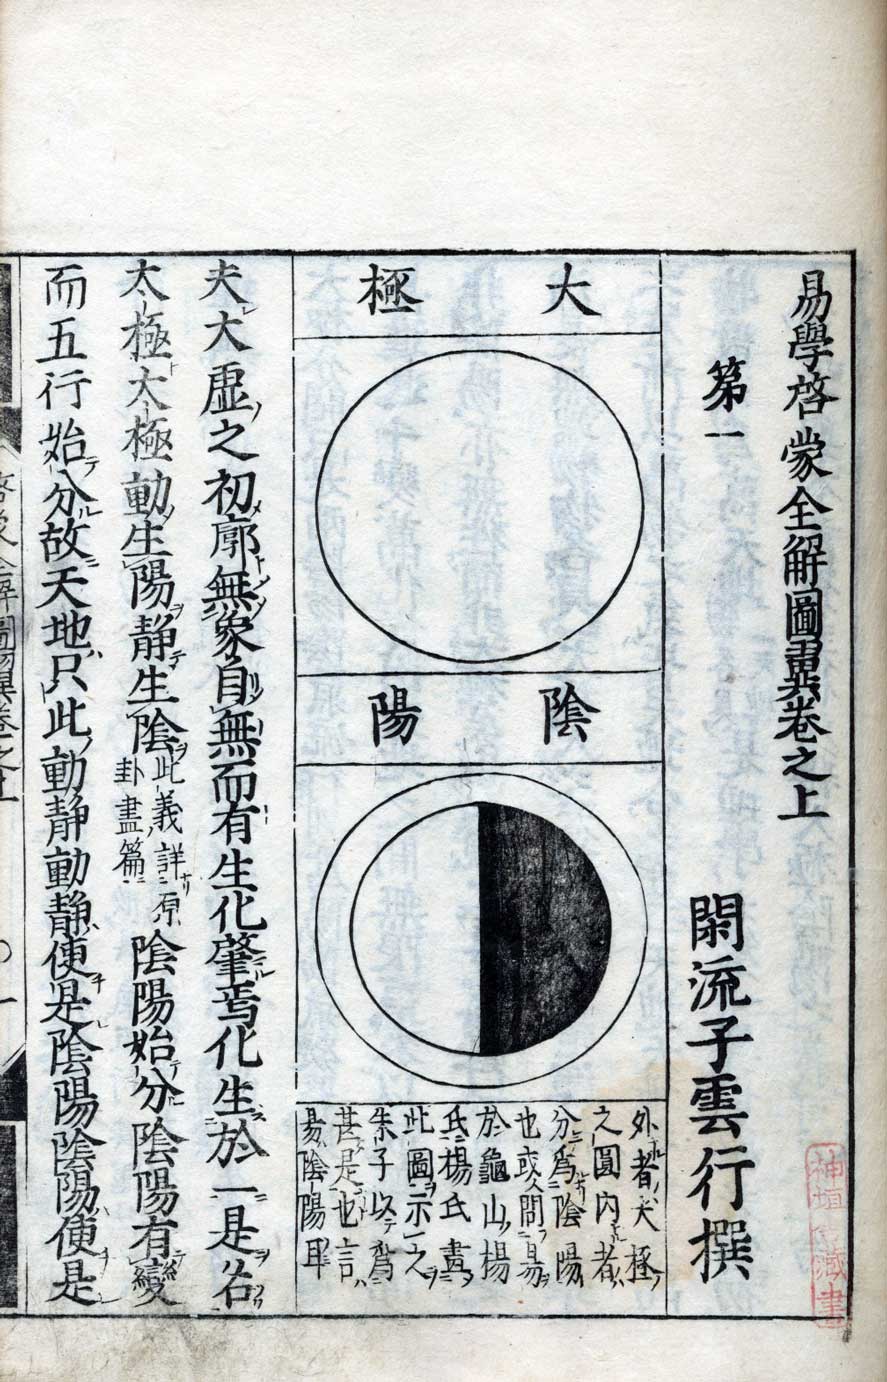 易學啓蒙全解圖翼卷之上
第一
閑流子雲行撰
大極
陰陽
外者大極
之圓内者
分爲陰陽
也或人問易
於龜山楊
氏楊氏畫
此圖示之
朱子以爲
甚是也言
易陰陽耳
夫大虛之初廓無象自無而有生化肇焉化生於一是名
太極太極動生陽靜生陰此義詳原卦畫篇陰陽始分陰陽有變
而五行始分故天地只此動靜動靜便是陰陽陰陽便是
啓蒙全解圖翼卷之上